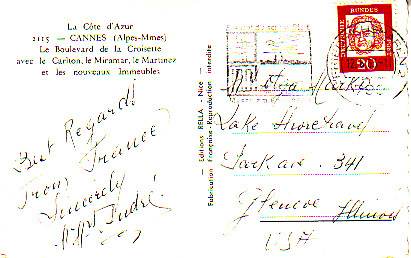 La Côte d'Azur
2115 — CANNES (Alpes-Mmes)
Le Boulevard de la Croisette
avec le Carlton, le Miramar, le Martinez
et les nouveaux Immeubles
Best Regards
From France
Sincerely
André
— Editions RELLA - Nice —
Fabrication Française - Reproduction interdite
DEUTSCHE BUNDESPOST
20
Lake Shore
Park Ave. 341
Glencoe Illinois
USA